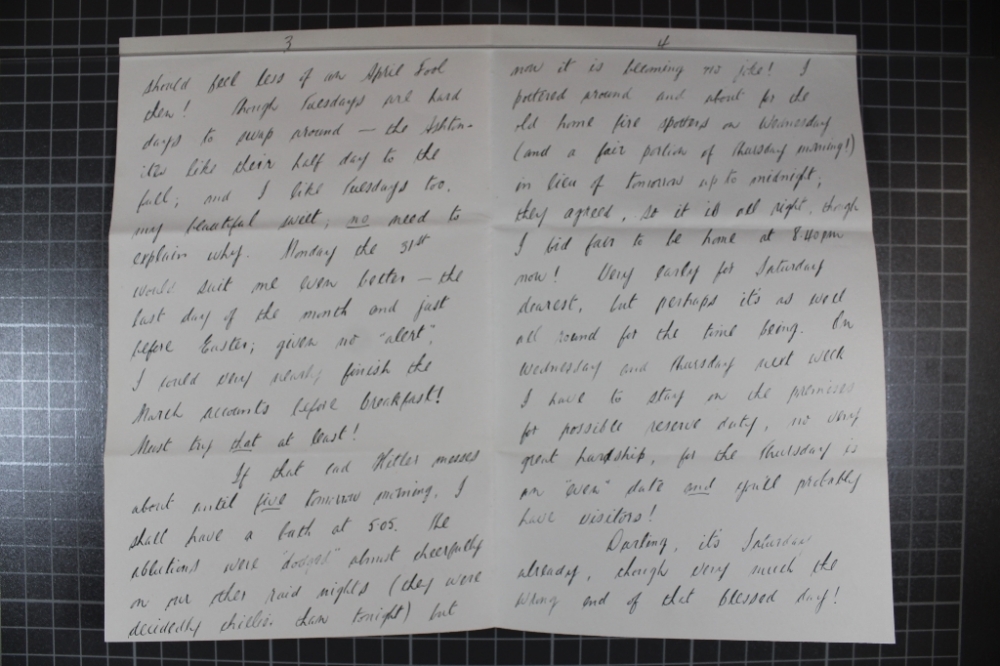 3
should feel less of an April Fool
then! Though Tuesdays are hard
days to swap around — the Ashton-
ites like their half day to the
full; and I like Tuesdays too,
my beautiful swilt; no need to
explain why. Monday the 31st
would suit me even better — the
last day of the month and just
before Easter; given no "alert",
I could very nearly finish the
March accounts before breakfast!
Must try that at least!
If that cad Hitler messes
about until five tomorrow morning, I
shall have a bath at 5.05. The
ablutions were "dodged" almost cheerfully
on our other raid nights (they were
decidedly chillier than tonight) but
4
now it is blooming no joke! I
pottered around and about for the
old home fire spotters on Wednesday
(and a fair portion of Thursday morning!)
in lieu of tomorrow up to midnight;
they agreed, so it is all right, though
I bid fair to be home at 8.40pm
now! Very early for Saturday
dearest, but perhaps it's as well
all round for the time being. On
Wednesday and Thursday next week
I have to stay on the premises
for possible reserve duty, no very
great hardship, for the Thursday is
an "even" date and you'll probably
have visitors!
Darling, it's Saturday
already, though very much the
wrong end of that blessed day!